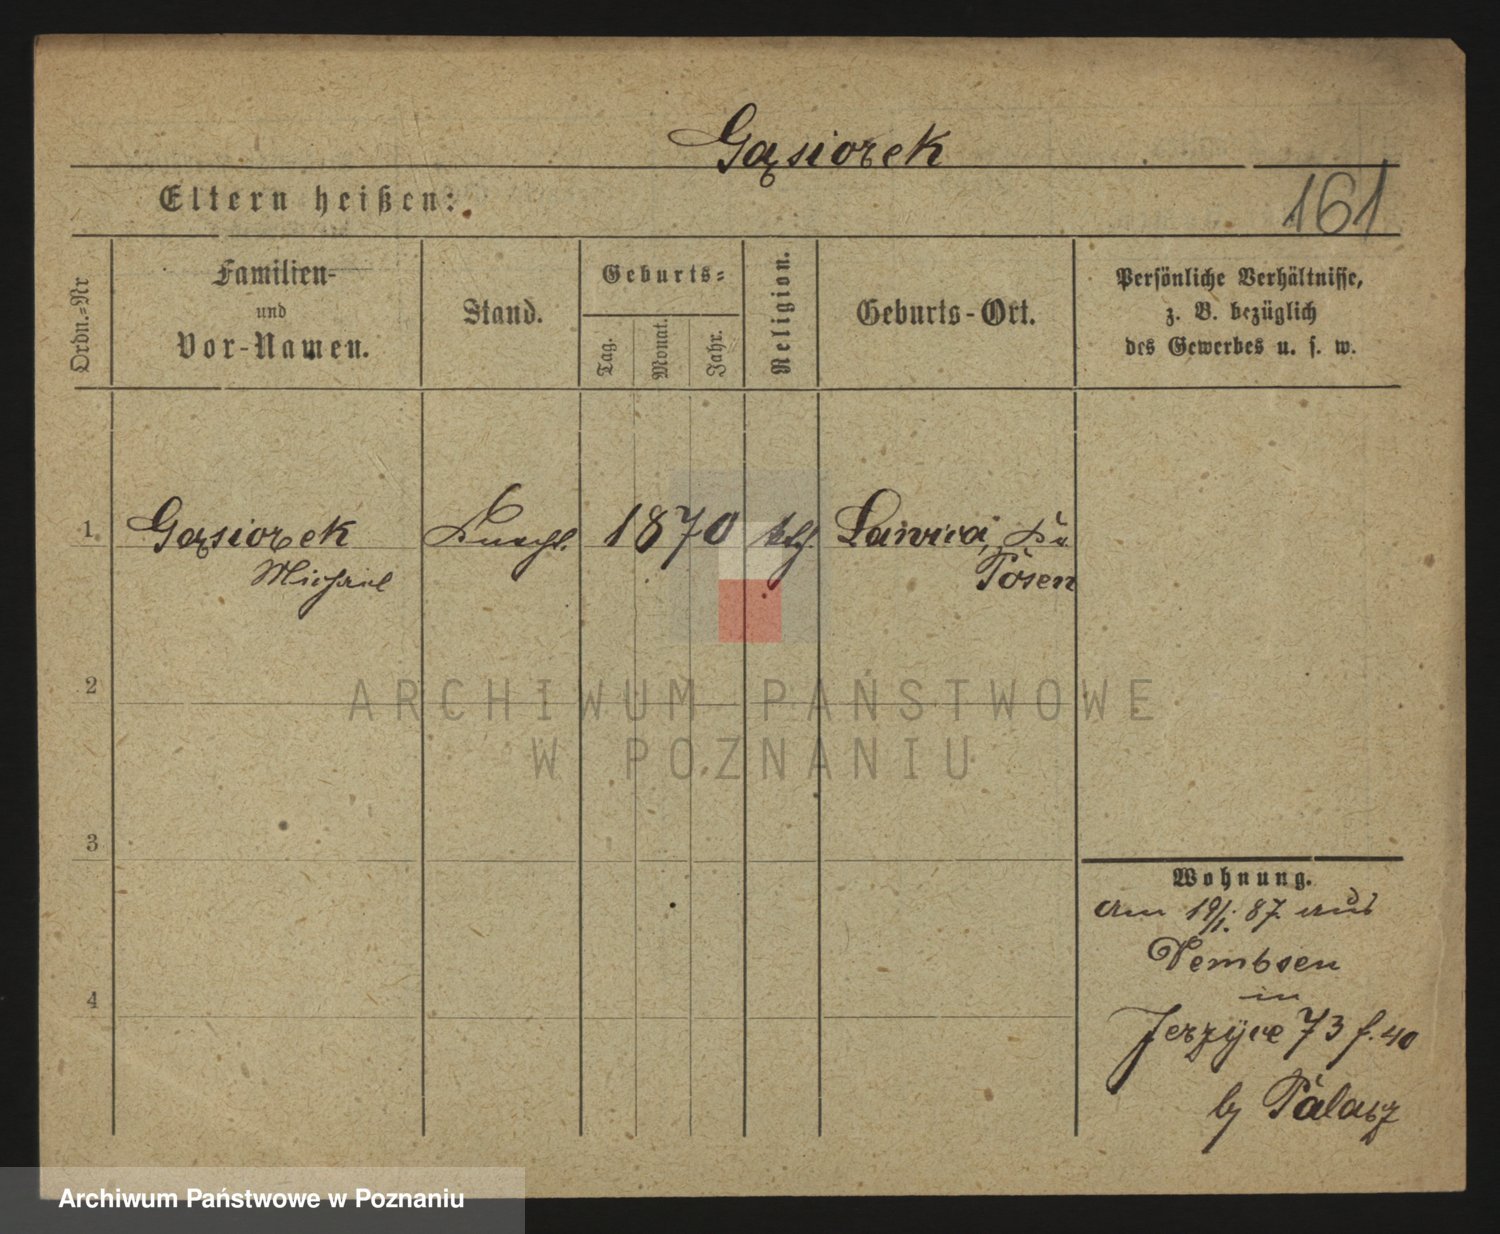 Gąsiorek
Eltern heißen:
161
Ordn.-Nr
Familien-
und
Vor-Namen.
Stand.
Geburts-
Tag.
Monat.
Jahr.
Religion.
Geburts-Ort.
Persönliche Verhältnisse,
z. B. bezüglich
des Gewerbes u. s. w.
1. Gąsiorek 1870 kth.
Michael Posen
2
ARCHIWUM PAŃSTWOWE
W POZNANIU
3
Wohnung.
am 19/1. 87. aus
Dembsen
4
in
Jerzyce 73 f. 40
by Palacz
Archiwum Państwowe w Poznaniu